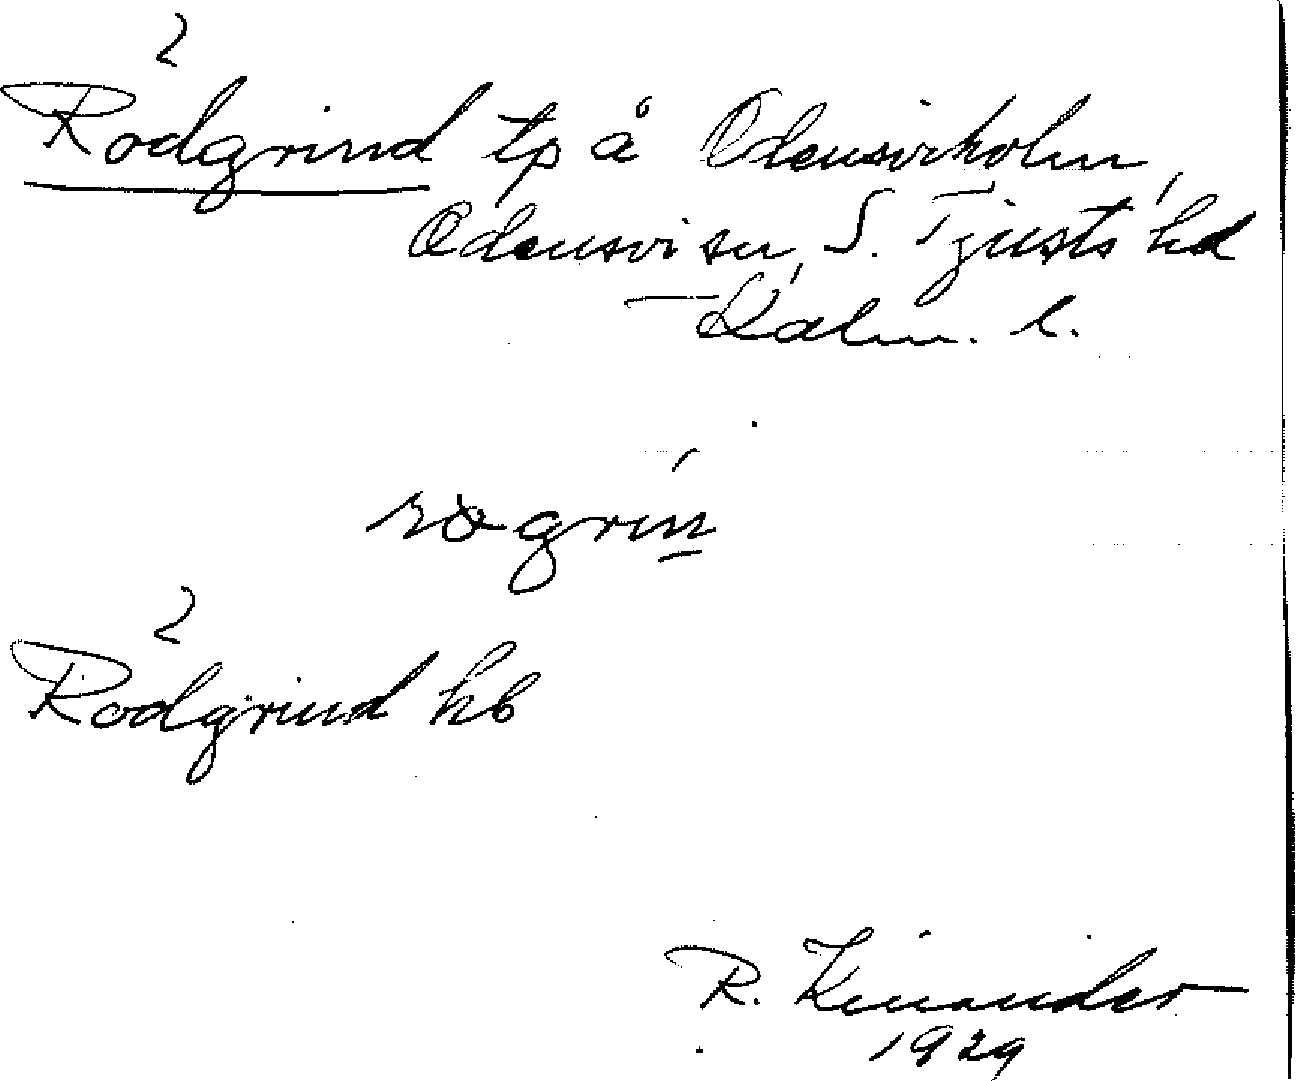 2
Rödgrind tp å Odensviholm,
Odensvi sn, S. Tjusts hd
Kalm. l.
røgrin
2
Rödgrind kb
R. Kinander
1929